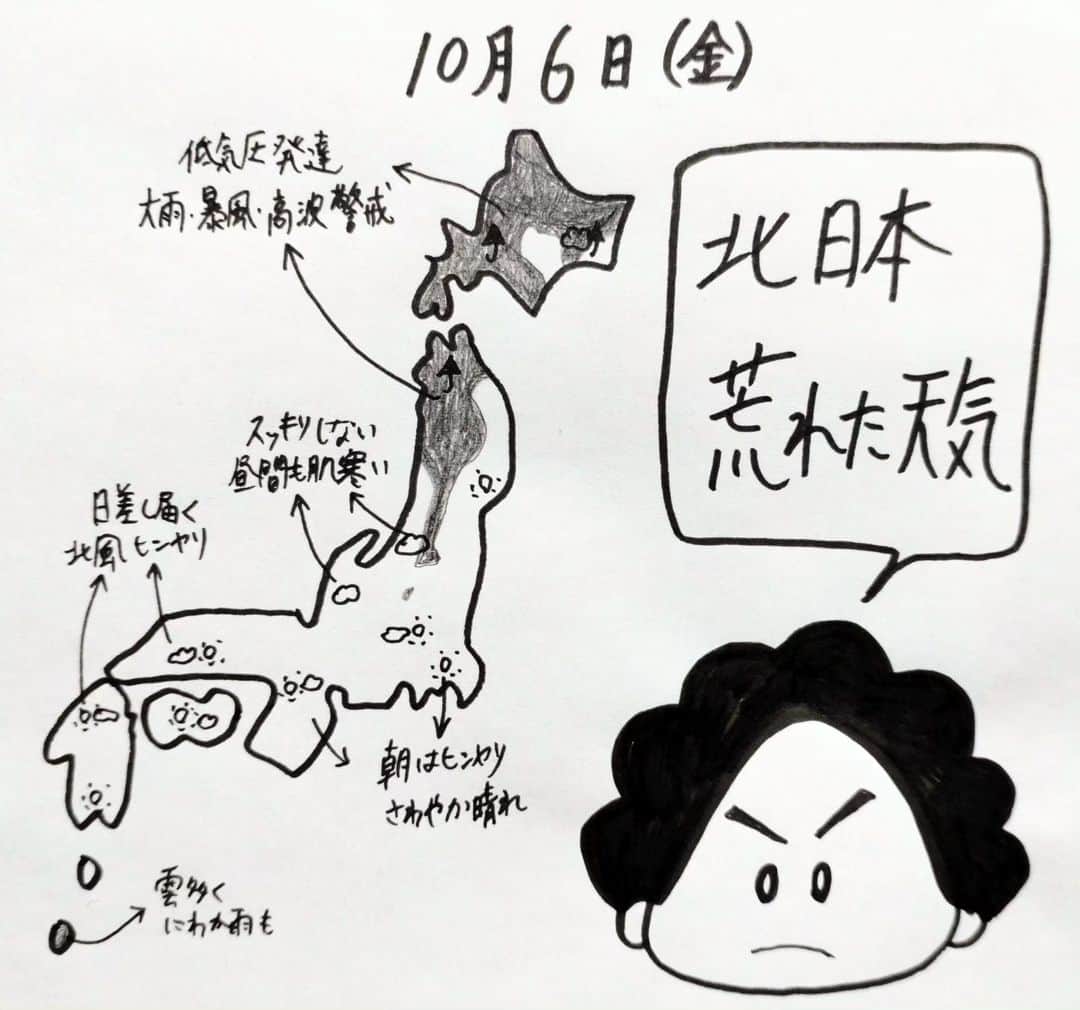 10月6日(金)
低気圧発達
大雨・暴風・高波警戒
北日本
荒れた天気
スッキリしない
昼間も肌寒い
日差し届く
北風ヒンヤリ
朝はヒンヤリ
さわやか晴れ
雲多く
にわか雨も